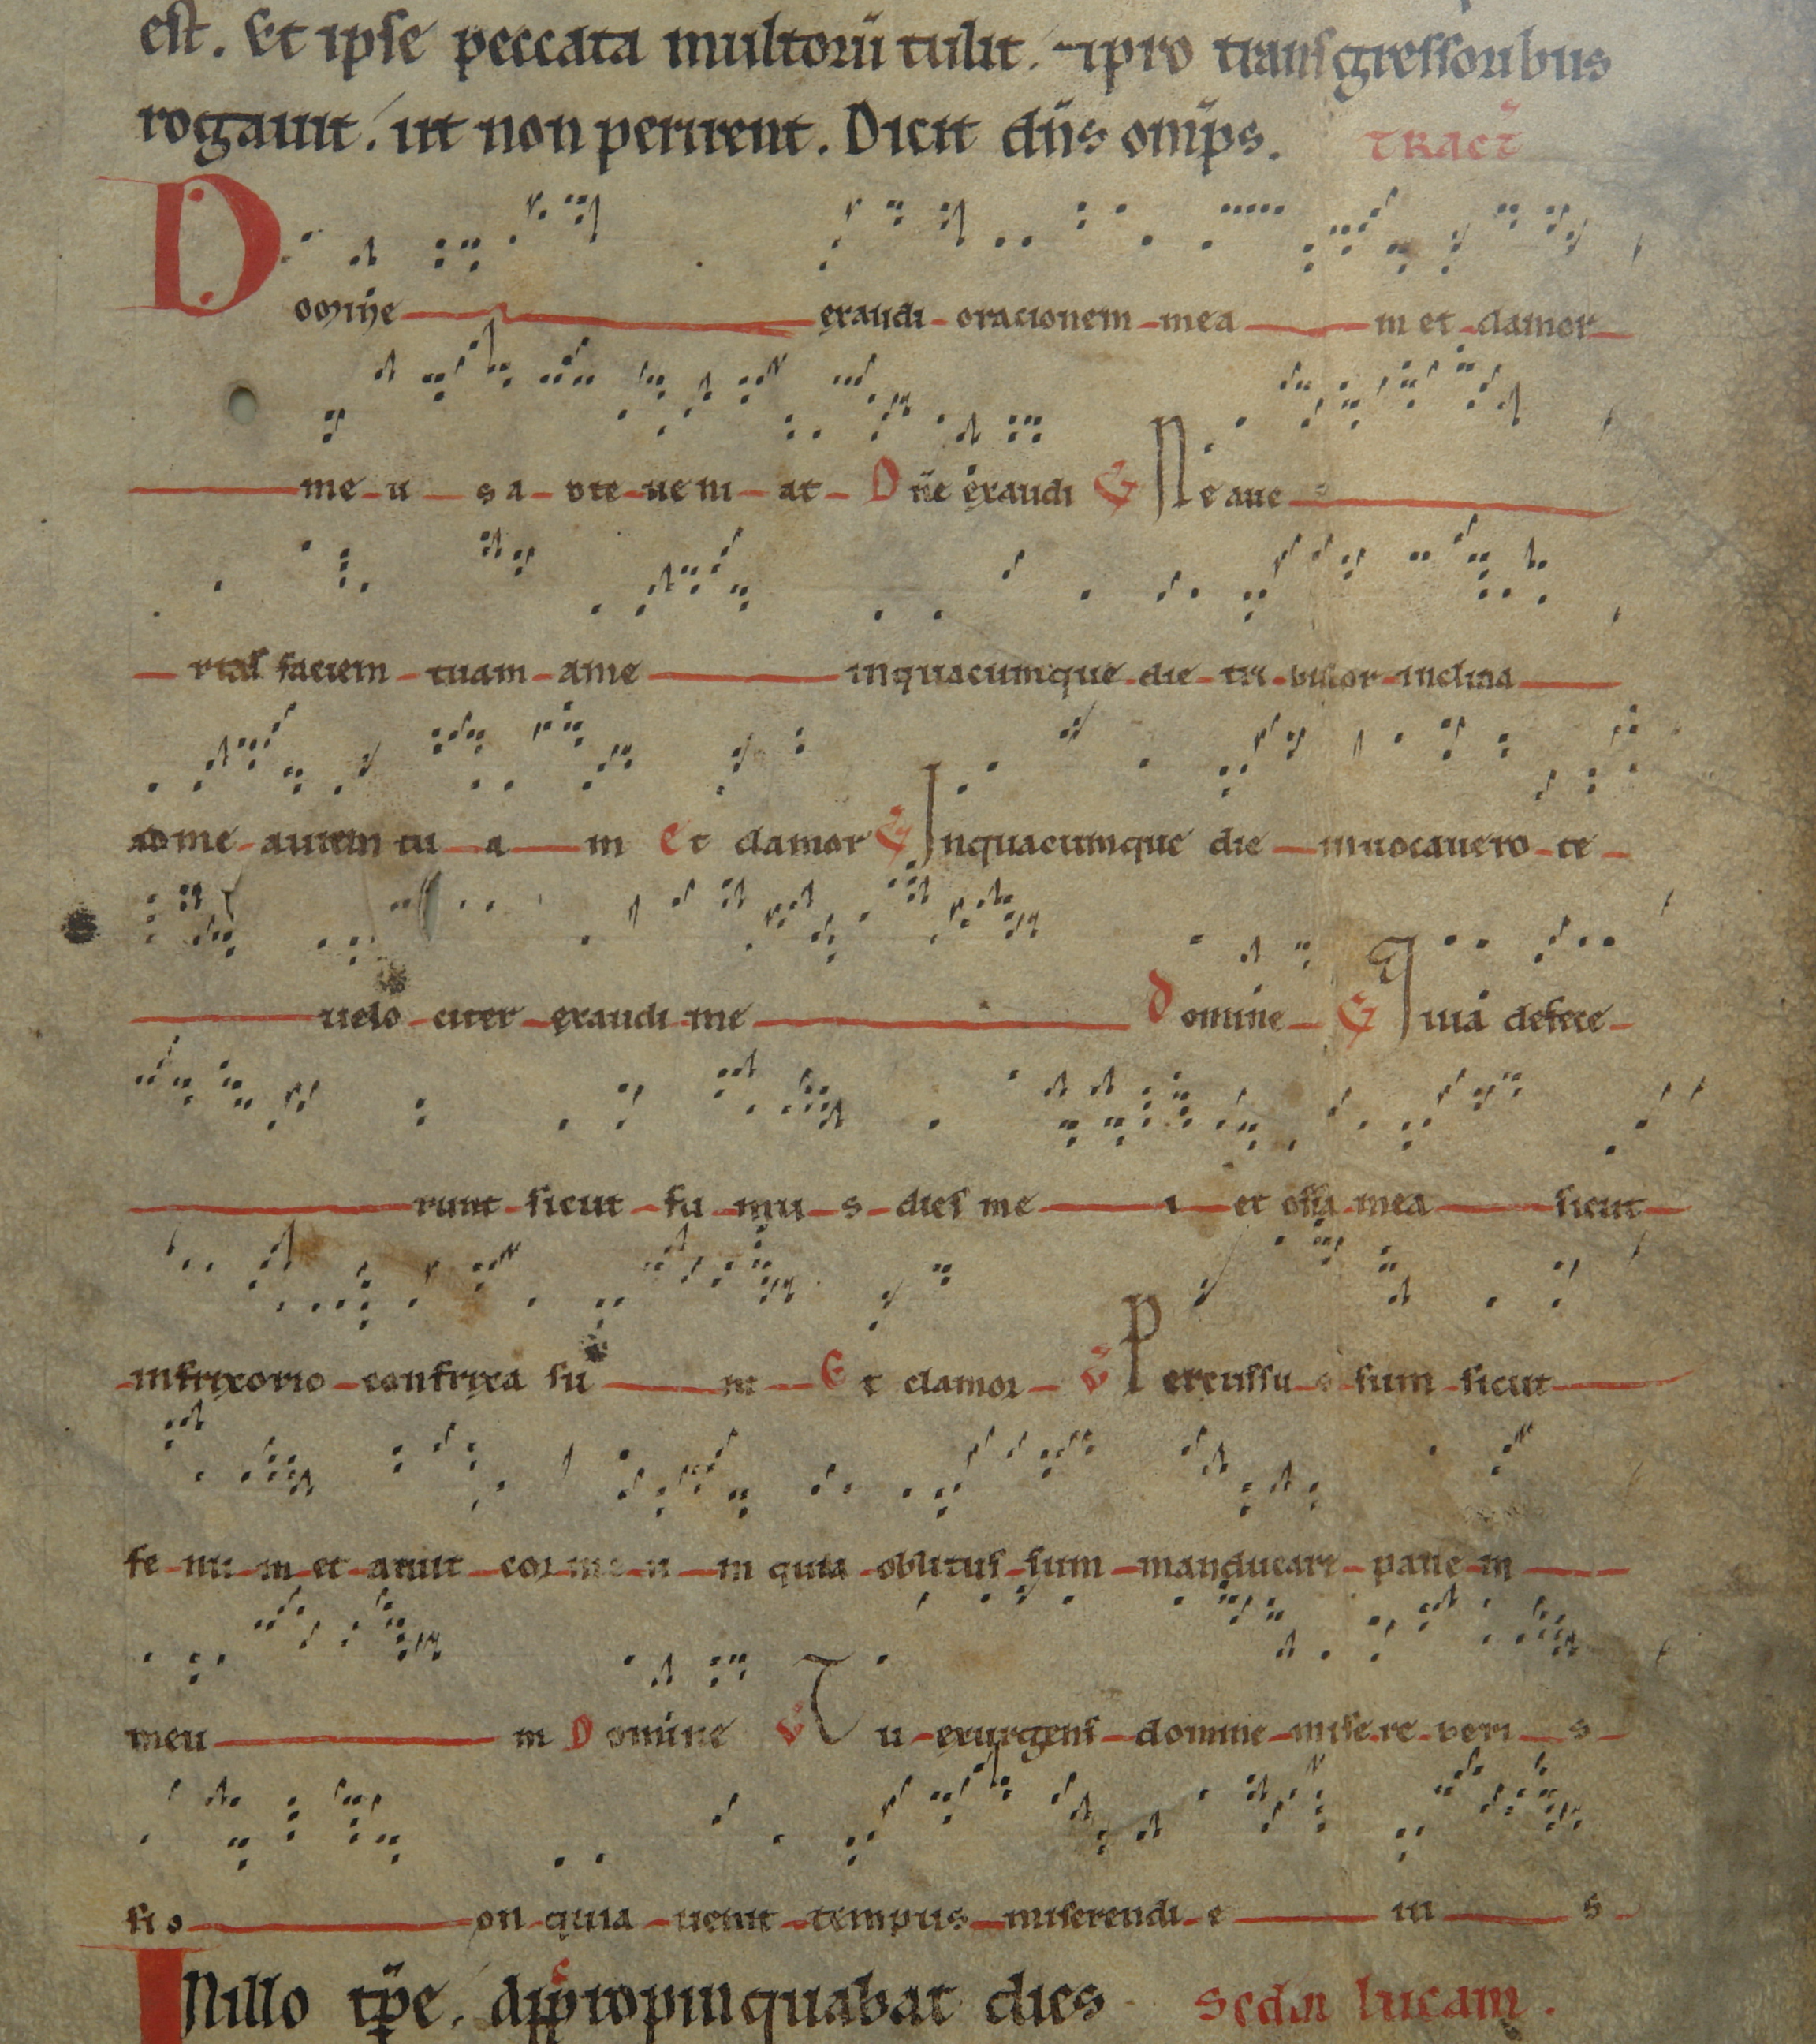 est. Et ipse peccata multorū tulit. ⁊ ipro transgressoribus
rogauit. ut non perirent. Dicit dn̄s om̄ps. TRACT̄
Domine exaudi oracionem mea m et clamor
me u s a dte ueni at Dn̄e exaudi V̄ Ne aue
rtas faciem tuam ame inquacumque die tri bulor inclina
adme aurem tu a m Et clamor V̄ Inquacumque die inuocauero te
uelo citer exaudi me Domine V̄ Quia defece
runt sicut fu mu s dies me i et ossa mea sicut
infrixorio confrixa su m Et clamor V̄ Percussu s sum sicut
fe nu m et aruit cor me u m quia oblitus sum manducare pane m
meu m Domine V̄ Tu exurgens domine mise re beri s
si o on quia uenit tempus miserendi e iu s
INillo tp̄e. appropinquabat dies Scdm lucam.